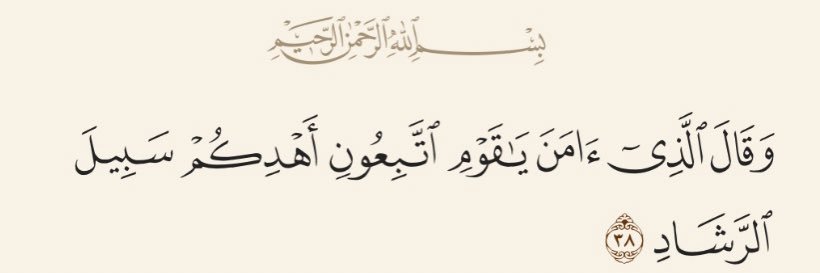 بِسْمِ ٱللَّهِ ٱلرَّحْمَٰنِ ٱلرَّحِيمِ
وَقَالَ ٱلَّذِىٓ ءَامَنَ يَٰقَوْمِ ٱتَّبِعُونِ أَهْدِكُمْ سَبِيلَ
ٱلرَّشَادِ ٣٨